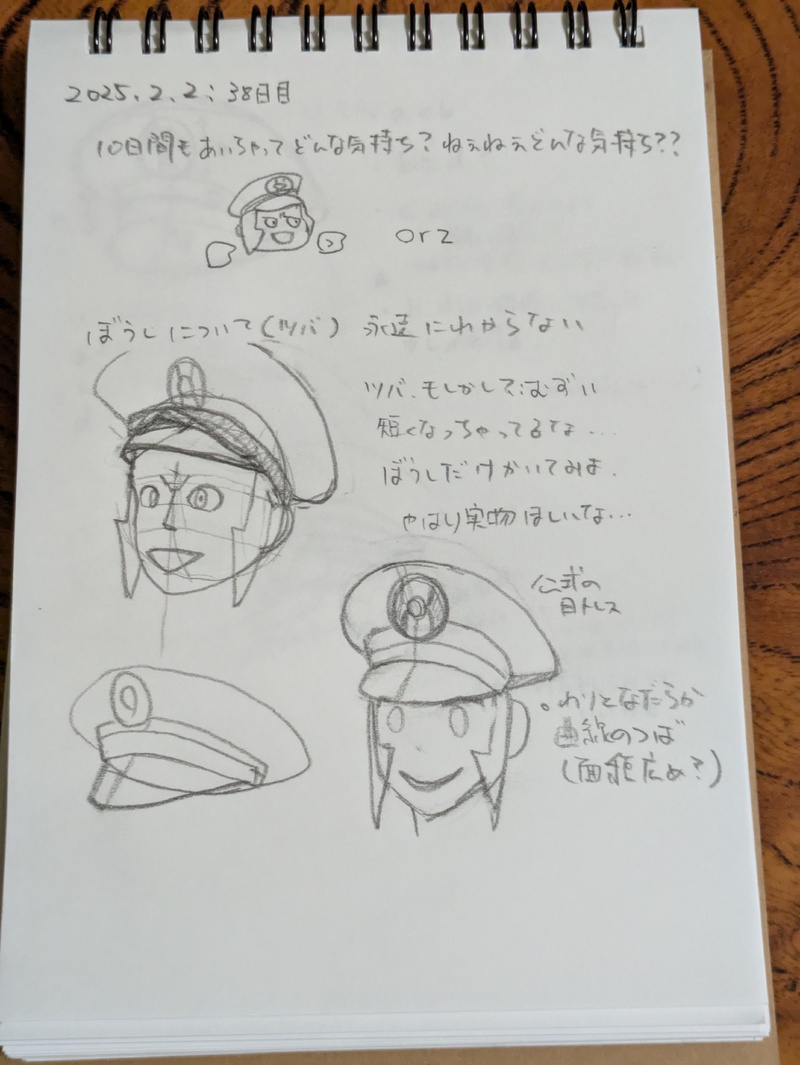 2025.2.2: 38日目
10日間もあいちゃってどんな気持ち?ねえねえどんな気持ち??
orz
ぼうしについて(ツバ) 永遠にわからない
ツバ、もしかして:むずい
短くなっちゃってるな...
ぼうしだけかいてみよ.
やはり実物ほしいな...
公式の
目トレス
。わりとなだらか
曲線のつば
(面積広め?)